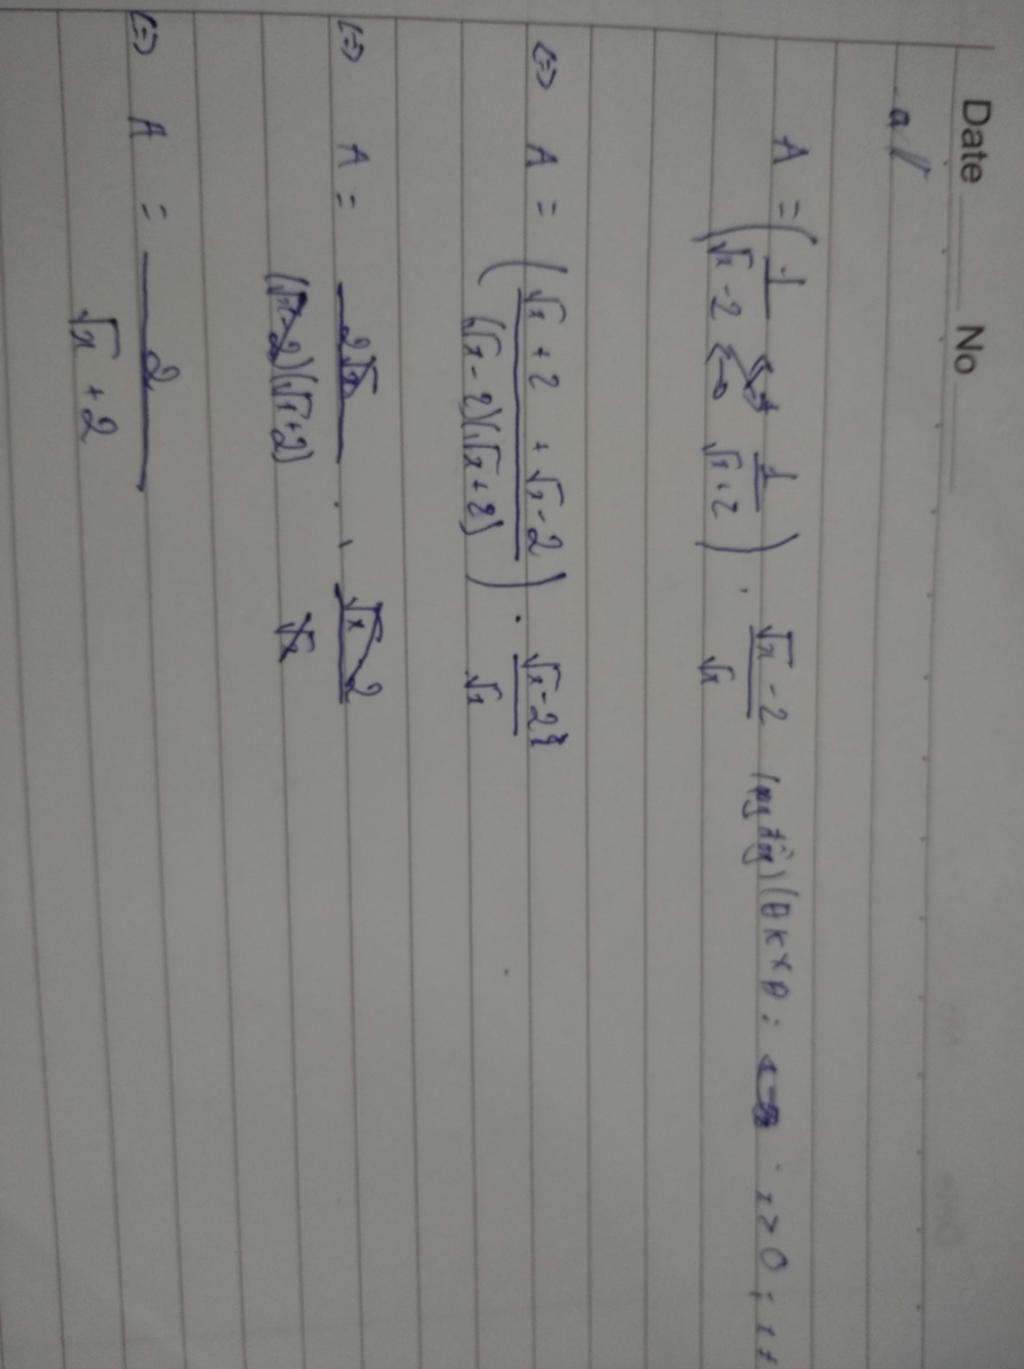 Date No
a//
A = ( 1/(√x - 2) + 1/(√x + 2) ) . (√x - 2)/√x (ĐKXĐ: x > 0 ; x ≠
⇔ A = ( (√x + 2 + √x - 2)/((√x - 2)(√x + 2)) ) . (√x - 2)/√x
⇔ A = 2√x/((√x - 2)(√x + 2)) . (√x - 2)/√x
⇔ A = 2/(√x + 2)